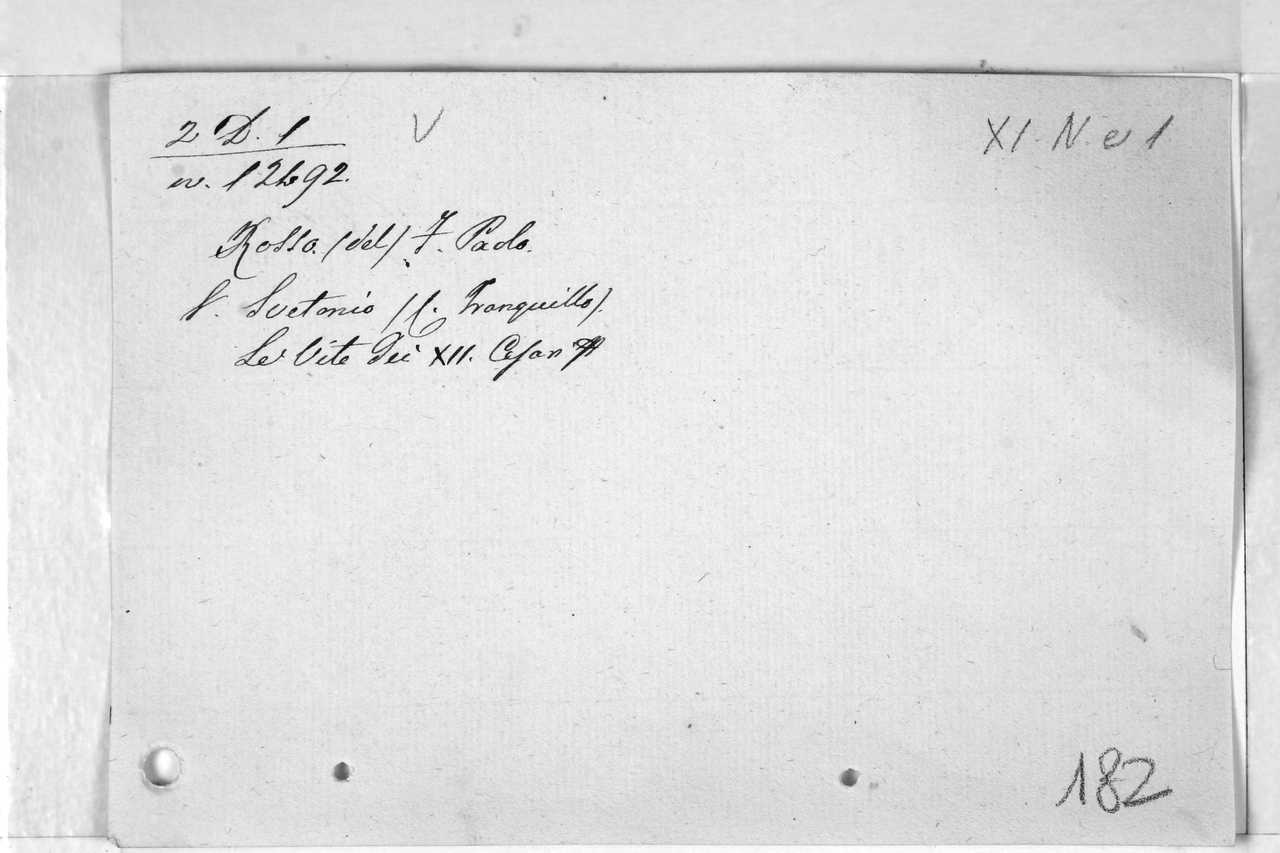 2 D. 1 V XI. N. e 1
n. 12692.
Rosso. (del) F. Paolo.
V. Svetonio (C. Tranquillo).
Le Vite dei XII. Cesari
182